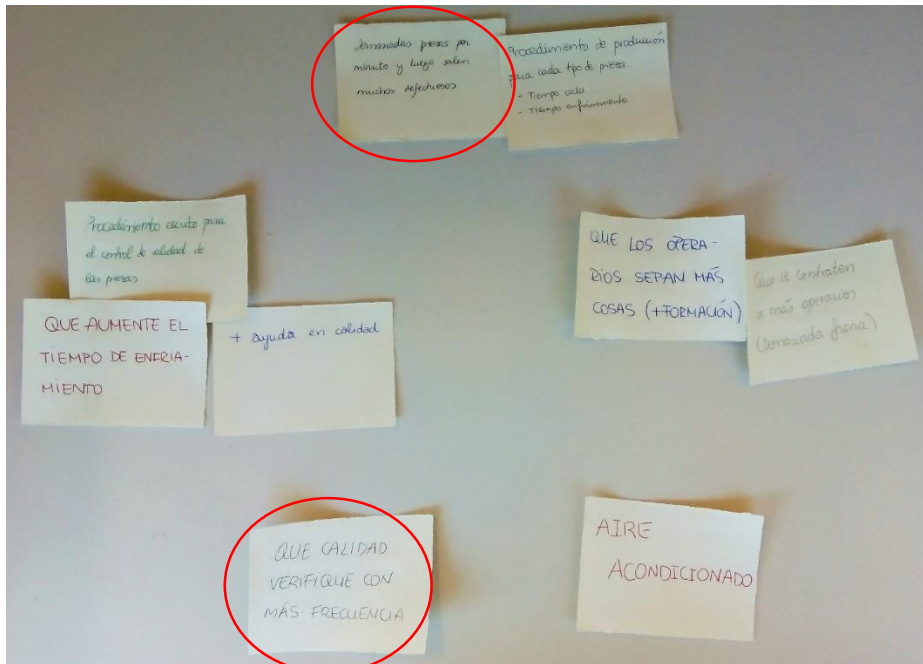 Demasiadas piezas por
minuto y luego salen
muchas defectuosas
Procedimiento de producción
para cada tipo de pieza
- Tiempo ciclo
- Tiempo enfriamiento
Procedimiento escrito para
el control de calidad de
las piezas
QUE AUMENTE EL
TIEMPO DE ENFRIA-
MIENTO
+ ayuda en calidad
QUE LOS OPERA-
RIOS SEPAN MÁS
COSAS (+FORMACIÓN)
Que se contraten
a más operarios
(Demasiada faena)
QUE CALIDAD
VERIFIQUE CON
MÁS FRECUENCIA
AIRE
ACONDICIONADO